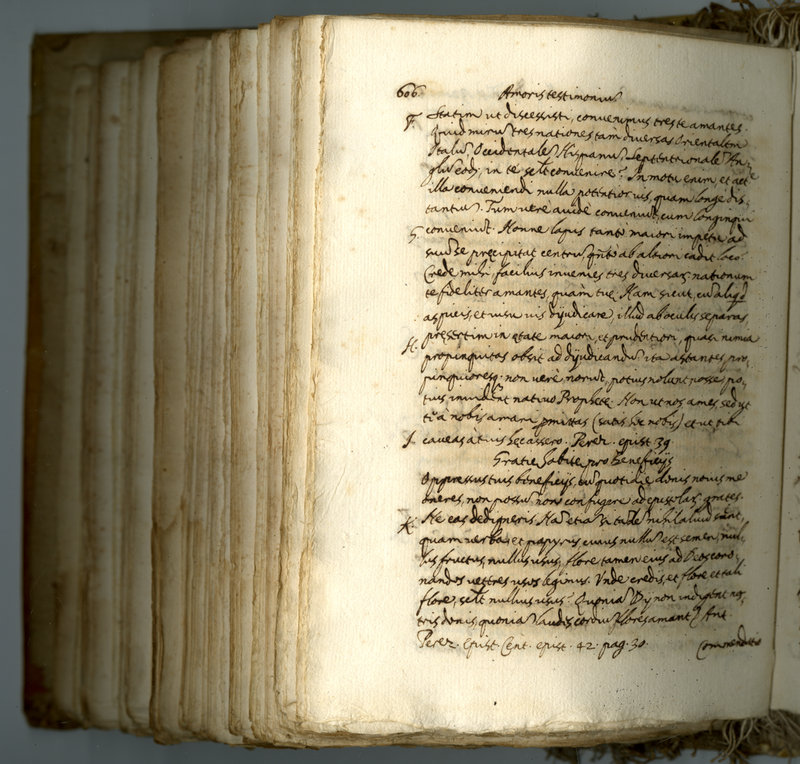 606 Amoris testimoniũ
F. Statim ut discessisti, convenimus tres te amantes.
Quid mirũ tres nationes tam diversas Orientalem
Italũ, Occidentalẽ Hispanũ, Septentrionalẽ An-
glũ eodẽ, in te scilt convenire? In motu enim, et actẽ
illa conveniendi nulla potentior vis, quam longe dis-
tantiũ. Tum vere avide conveniũt, cum longinqui
G. conveniũt. Nonne lapis tantò maiori impetu ad
suũ se precipitat centrũ, qñtò ab altiori cadit loco.
Crede mihi, facilius invenies tres diversarũ nationum
te fideliter amantes, quàm tuę. Nam sicut, cũ aliqd
aspicis, et visu vis dijudicare, illud ab oculis separas,
presertim in ętate maiori, et prudentiori, quasi nimia
H. propinquitas obsit ad dijudicandũ, ita astantes, pro-
pinquioresq. non verè norũt, potius nolunt posse, po-
tius invident nativo Prophetę. Non ut nos ames, sed ut
te à nobis amari pmittas (satis hoc nobis) et ut tibi
I. caveas à tuis hęc assero. Perez. epist. 39.
Gratię habitę pro beneficijs
Oppressus tuis beneficijs, cũ quotidie donis novis me
oneres, non possũ non confugere ad epistolas, grates.
K. Ne eas dedigneris. Nã etiã vitulẽ nihil aliud sũnt,
quam verba, et papyrus cuius nullũ est semen, nul-
lus fructus, nullus usus, flore tamen eius ad Deos coro-
nandos vettres usos legimus. Unde credis, et flore et tali
flore, scilt nullius usus? Quonia Dij non indigent nos-
tris donis, quoniã laudis cordiũ flores amant? Ant.
Perez. Epist. Cent. epist. 42. pag. 30. Comendatio